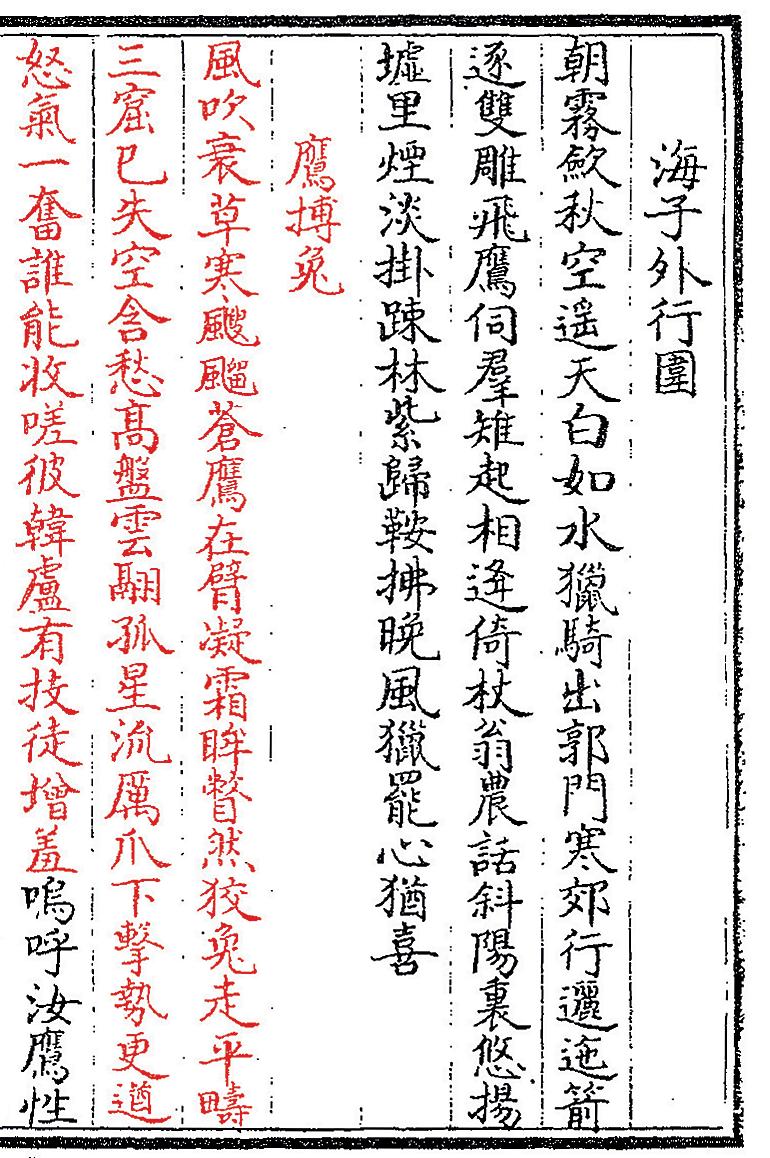 海子外行圍
朝霧歛秋空遥天白如水獵騎出郭門寒郊行邐迤箭
逐雙雕飛鷹伺羣雉起相逢倚杖翁農話斜陽裏悠揚
墟里煙淡掛踈林紫歸鞍拂晚風獵罷心猶喜
鷹搏兔
風吹衰草寒颼飀蒼鷹在臂凝霜眸瞥然狡兔走平疇
三窟已失空含愁高盤雲翮孤星流厲爪下擊勢更遒
怒氣一奮誰能收嗟彼韓盧有技徒增羞嗚呼汝鷹性